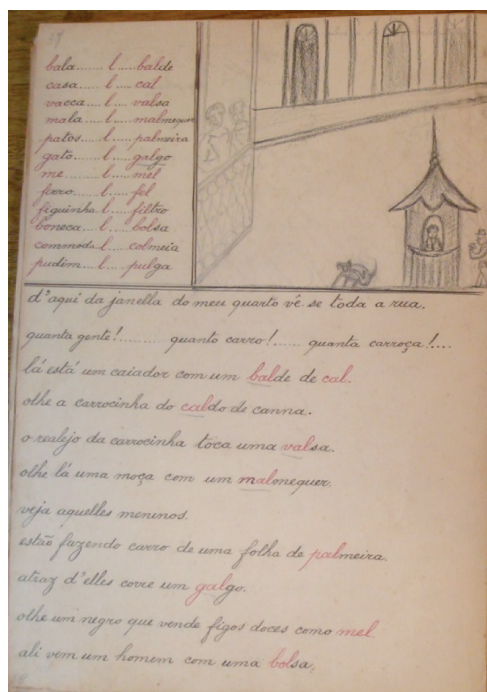 bala....... l .... balde
casa..... l .... cal
vacca.... l .... valsa
mala..... l .... malmequer
patos.... l .... palmeira
gato..... l .... galgo
me....... l ..... mel
ferro.... l .... fel
figuinha. l .... filtro
boneca... l .... bolsa
commoda. l .... colmeia
pudim.... l .... pulga
d'aqui da janella do meu quarto vê-se toda a rua.
quanta gente!......... quanto carro!...... quanta carroça!....
lá está um caiador com um balde de cal.
olhe a carrocinha do caldo de canna.
o realejo da carrocinha toca uma valsa.
olhe lá uma moça com um malmequer.
veja aquelles meninos.
estão fazendo carro de uma folha de palmeira.
atraz d'elles corre um galgo.
olhe um negro que vende figos doces como mel.
ali vem um homem com uma bolsa.